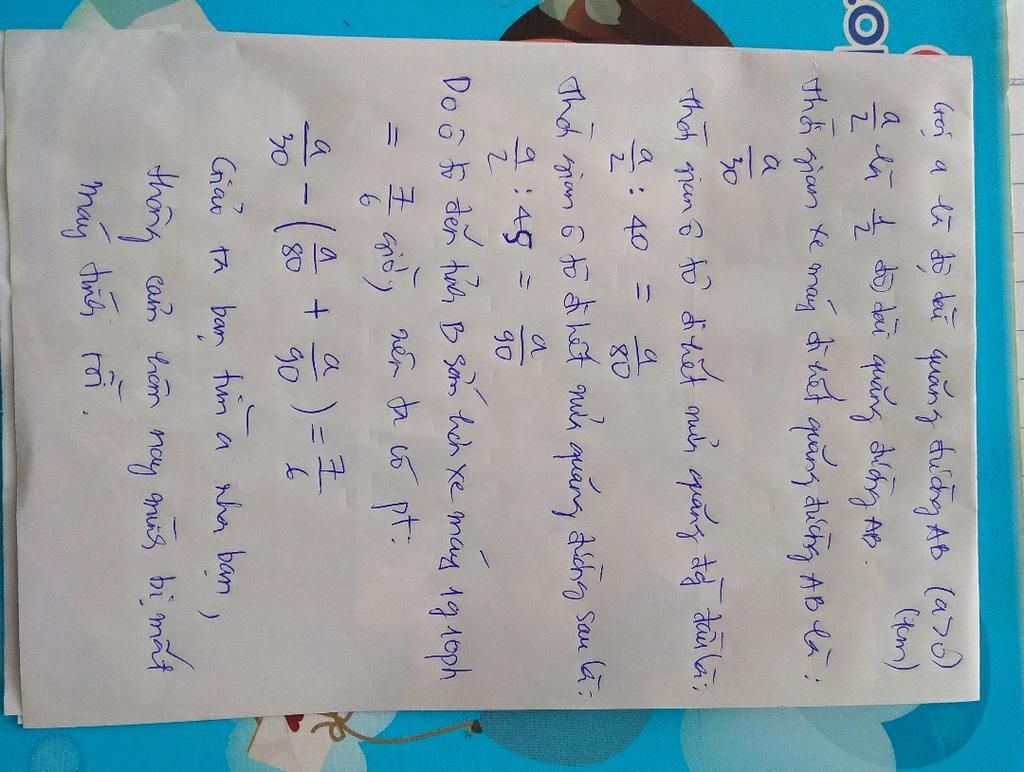 Gọi a là độ dài quãng đường AB (a>0)
(km)
a/2 là 1/2 độ dài quãng đường AB.
Thời gian xe máy đi hết quãng đường AB là:
a/30
Thời gian ô tô đi hết nửa quãng đg đầu là:
a/2 : 40 = a/80
Thời gian ô tô đi hết nửa quãng đường sau là:
a/2 : 45 = a/90
Do ô tô đến tỉnh B sớm hơn xe máy 1g10ph
= 7/6 giờ, nên ta có pt:
a/30 - (a/80 + a/90) = 7/6
Giải ra bạn tìm a nha bạn,
thông cảm hôm nay mình bị mất
máy tính rồi.